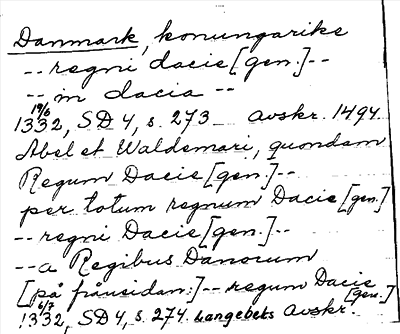 Danmark, konungarike
-- regni dacie [gen.] --
-- in dacia --
19/6
1332, SD 4, s. 273 avskr. 1494.
Abel et Waldemari, quondam
Regum Dacie [gen.] --
per totum regnum Dacie [gen.]
-- regni Dacie [gen.] --
-- a Regibus Danorum
[på frånsidan:] -- regum Dacie [gen.]
6/7
1332, SD 4, s. 274. Langebeks avskr.